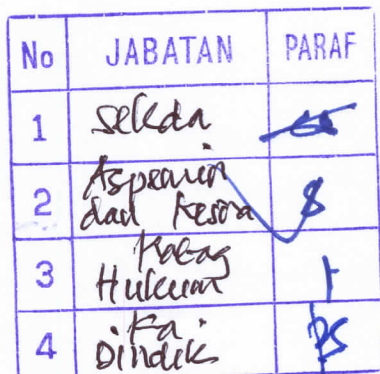 No JABATAN PARAF
1 Sekda
2 Aspemin
dan Kesra
3 Kabag
Hukum
4 Ka.
Dindik